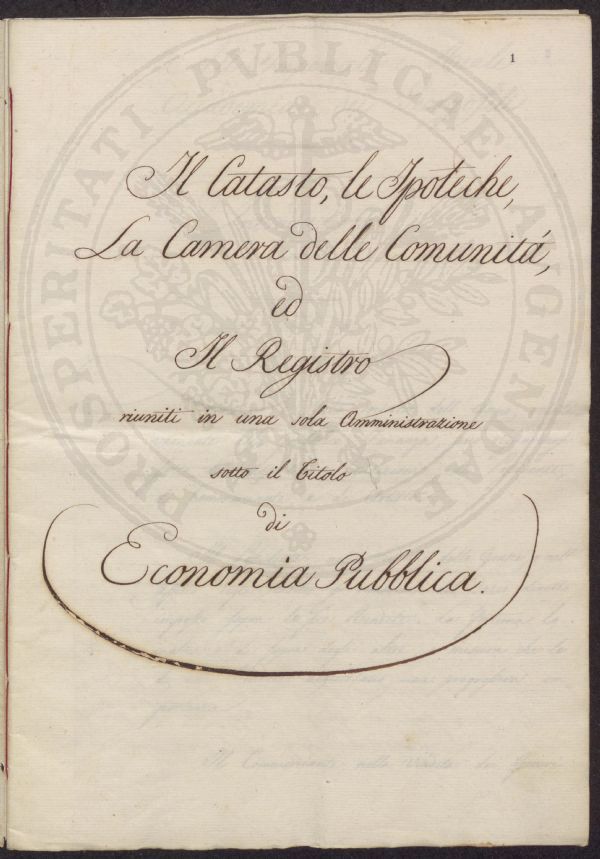 1
Il Catasto, le Ipoteche,
La Camera delle Comunitá,
ed
Il Registro
riuniti in una sola Amministrazione
sotto il Titolo
di
Economia Pubblica.
PROSPERITATI PUBLICAE AUGENDAE